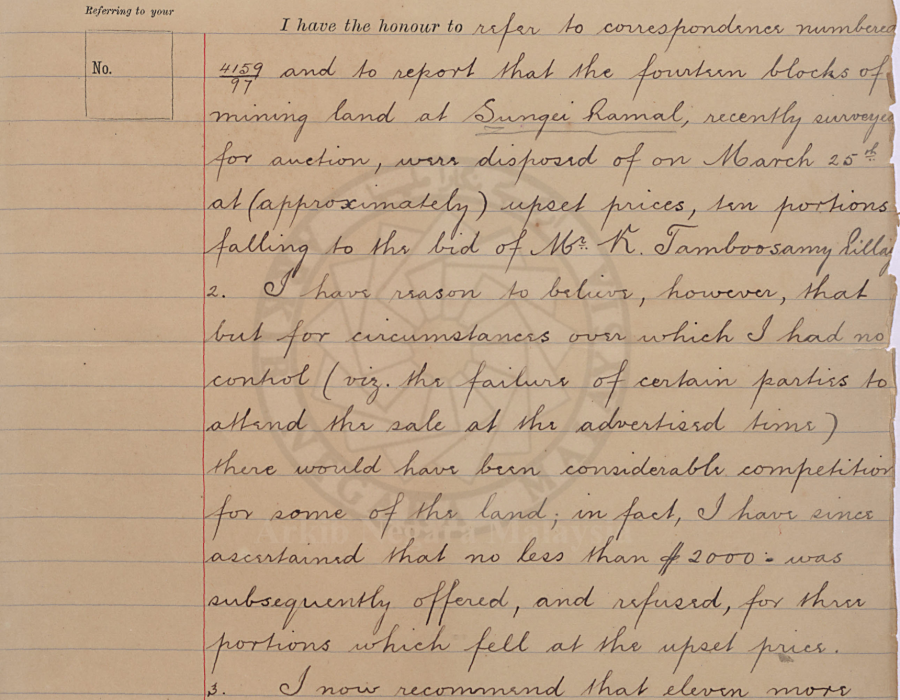 Referring to your
No.
I have the honour to refer to correspondence numbered
4159/97 and to report that the fourteen blocks of
mining land at Sungei Ramal, recently surveyed
for auction, were disposed of on March 25th
at (approximately) upset prices, ten portions
falling to the bid of Mr. K. Tamboosamy Pillay
2. I have reason to believe, however, that
but for circumstances over which I had no
control (viz. the failure of certain parties to
attend the sale at the advertised time)
there would have been considerable competition
for some of the land; in fact, I have since
ascertained that no less than $2000:- was
subsequently offered, and refused, for three
portions which fell at the upset price.
3. I now recommend that eleven more
Arkib Negara Malaysia